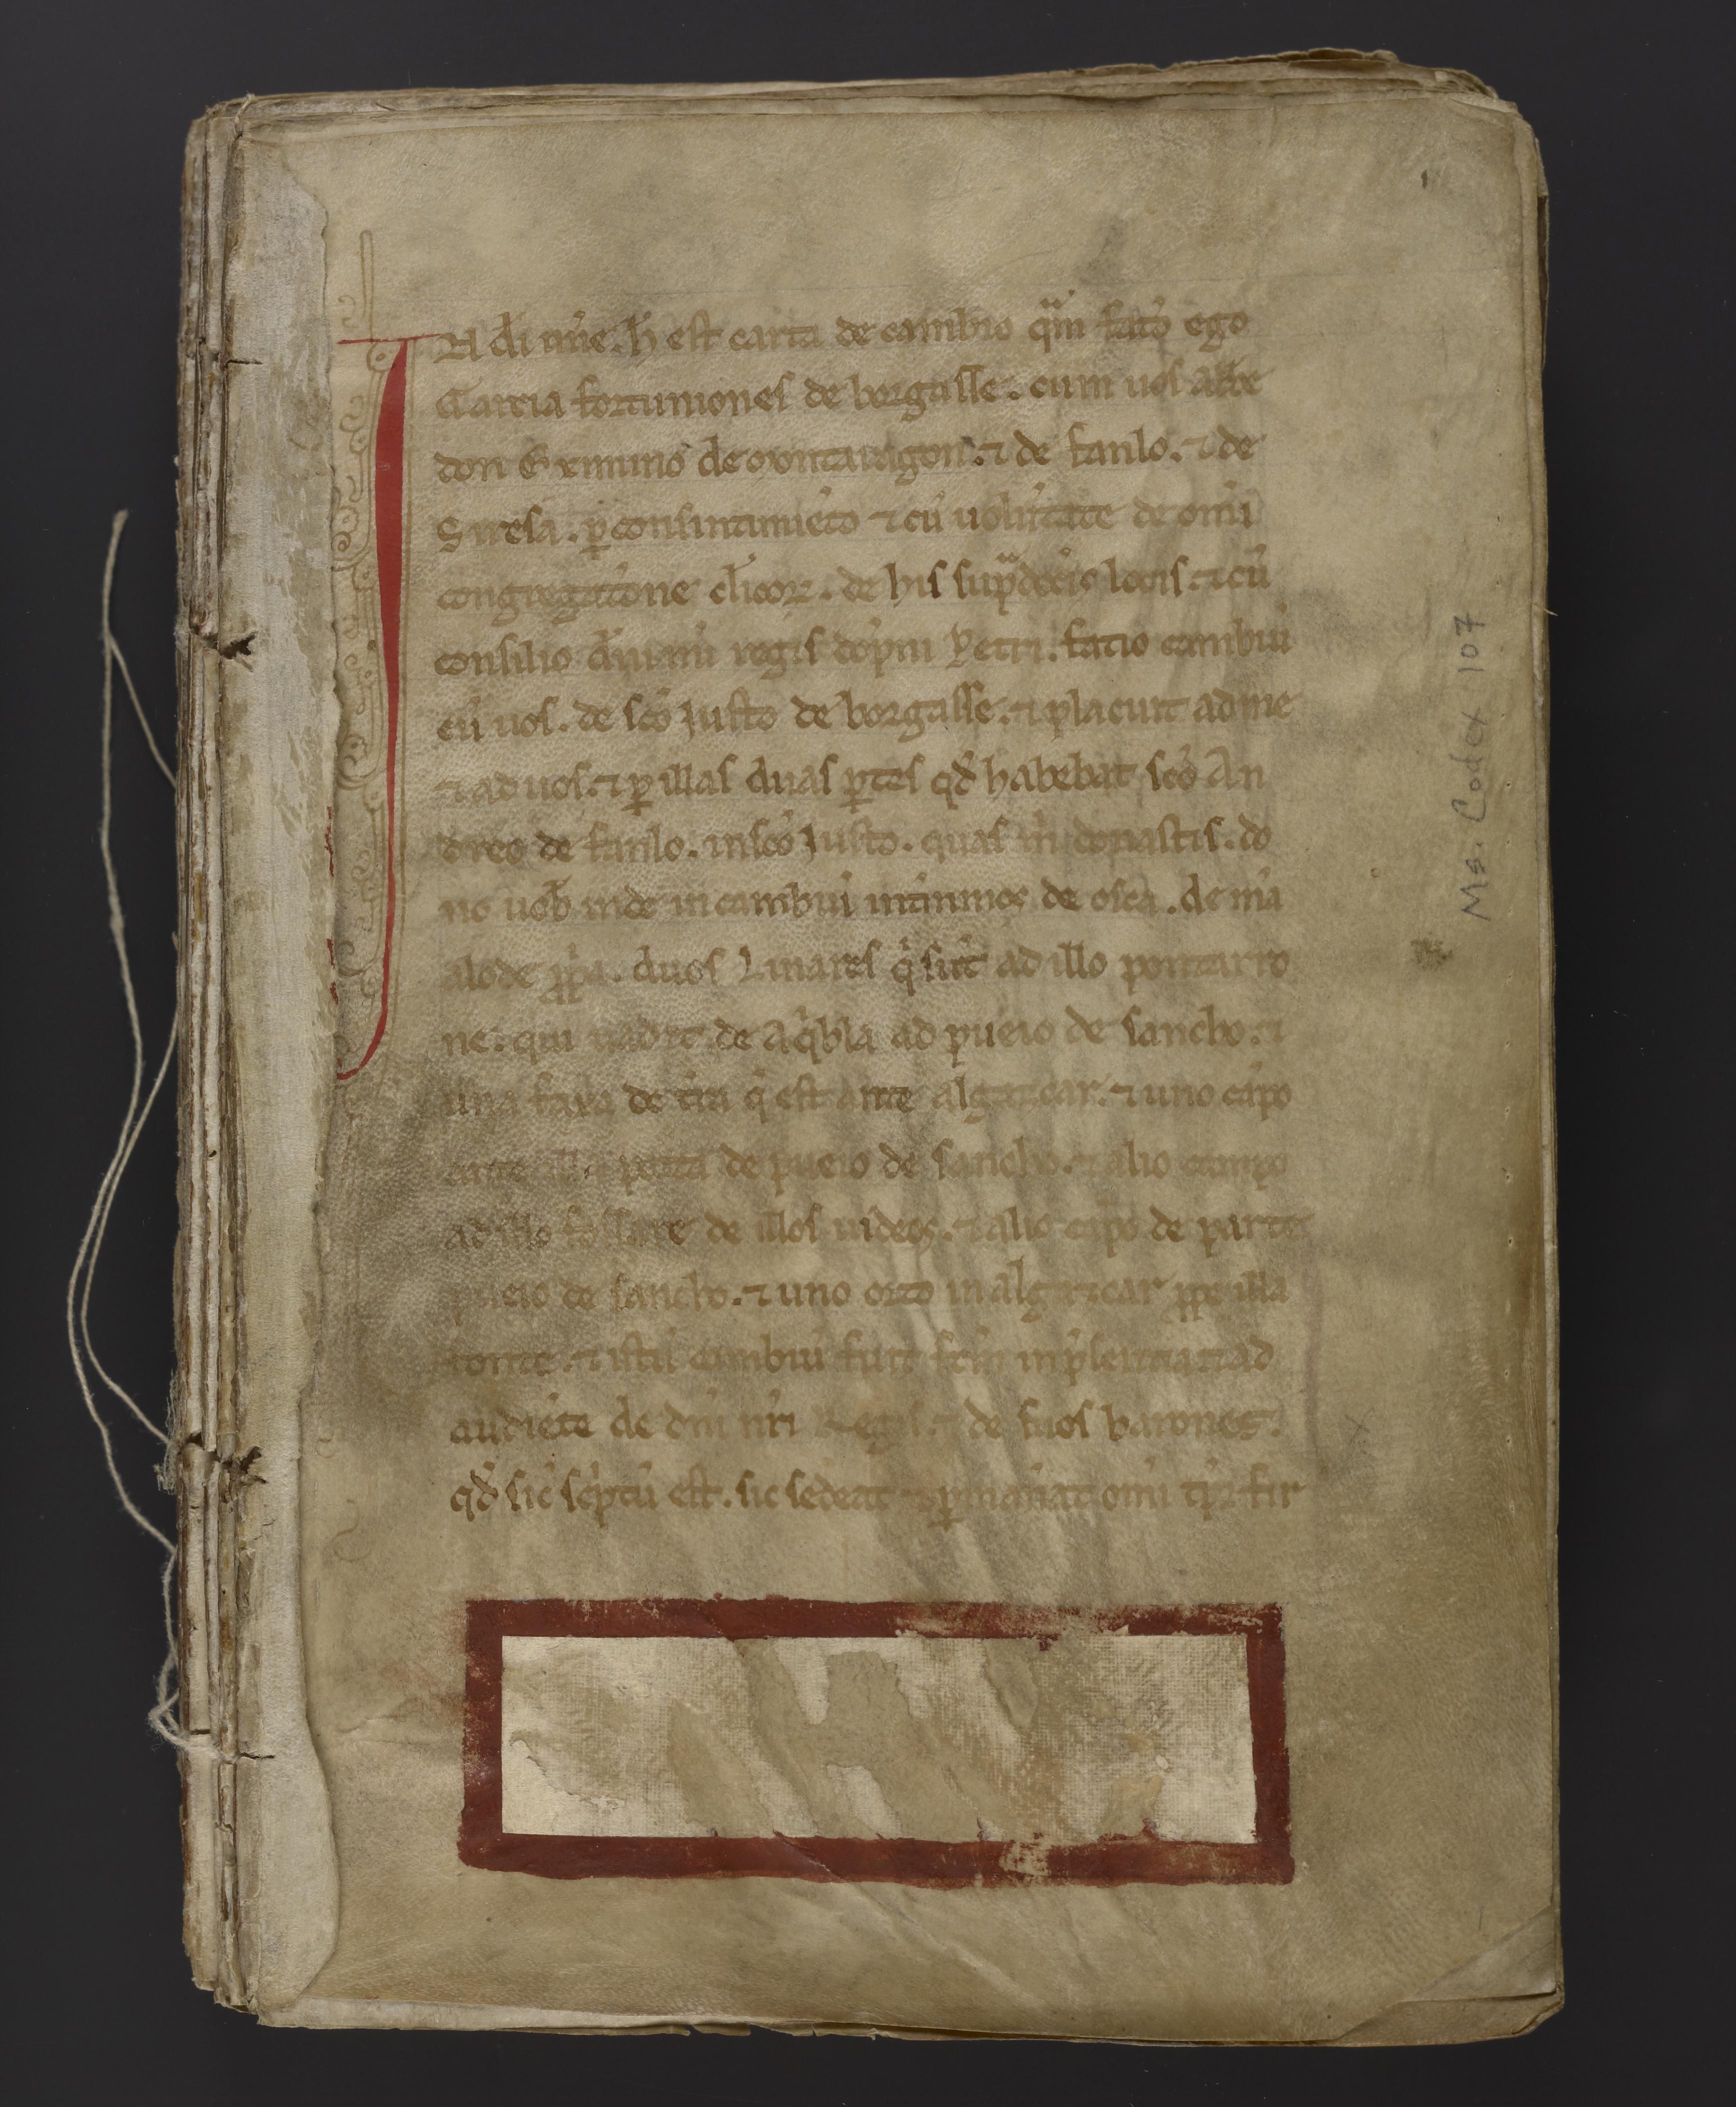 IN dī nīe. h̄ est carta de cambio quam fatio ego
Garcia fortuniones de borgasse. cum uos abbe
don Eximino de montaragon. ⁊ de fanlo. ⁊ de
Siresa. ꝑ consintimiēto ⁊ cū uolūtate de omī
congregatione cl̄icoꝝ. de his supradictis locis. ⁊ cū
consilio domini regis dopni Petri. fatio cambiū
cū uos. de sc̄o Justo de borgasse. ⁊ placuit ad me
⁊ ad uos. ⁊ ꝑ illas duas ꝑtes qd̄ habebat sc̄o An
dreo de fanlo. in sc̄o Justo. quas m̄ donastis. do
no uob̄ inde in cambiū in tinmos de osca. de mīa
alode ꝓpa. duos Linares q̄ sūt ad illo pontarro
ne. qui uadit de Aq̄bla ad pueio de sancho. ⁊
una faxa de tr̄a q̄ est ante algazcar. ⁊ uno cāpo
porta de pueio de sancho. ⁊ alio campo
ad illo de illos iudeos. ⁊ alio cāpo de parte
pueio de sancho. ⁊ uno orto in algazcar ꝓpe illa
fonte. ⁊ istū cambiū fuit fc̄m in p̄sentia ⁊ ad
audiēte de dn̄i nr̄i Regis. ⁊ de suos barones.
qd̄ sic sc̄ptū est. sic sedeat ⁊ ꝑmaneat omī tp̄r fir
Ms. Codex 107
1